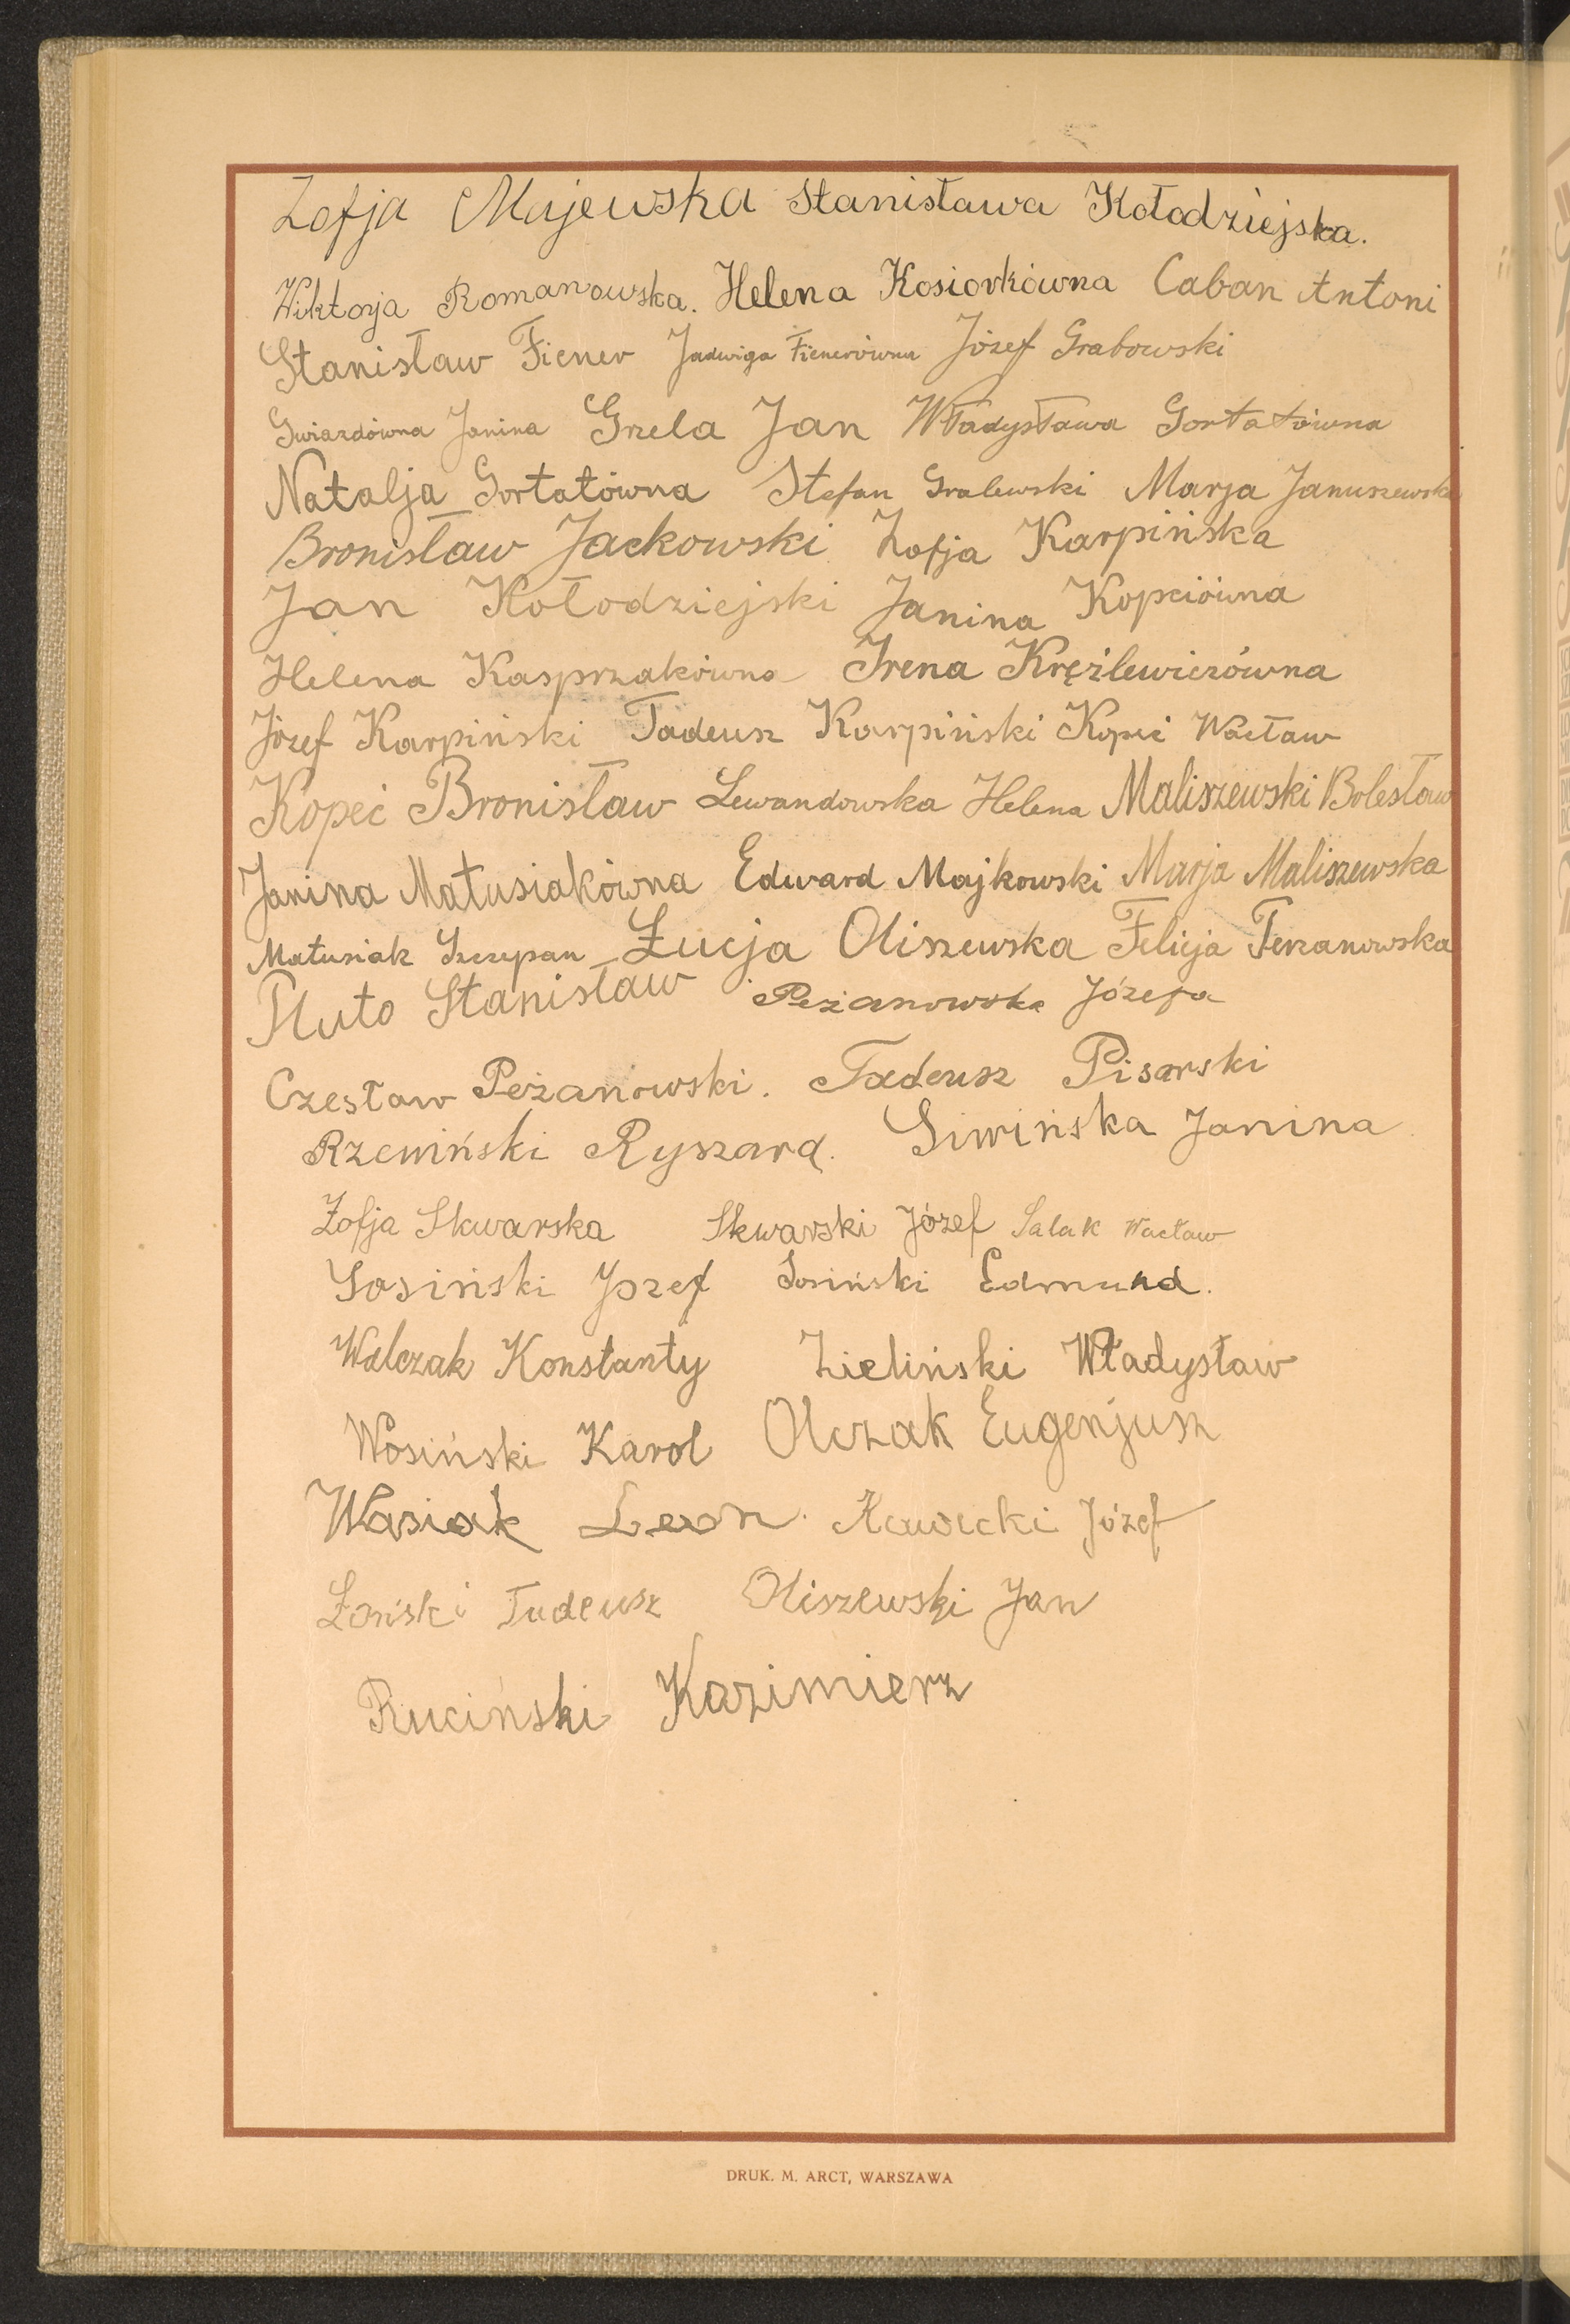 Zofja Majewska Stanisława Kołodziejska.
Wiktorja Romanowska. Helena Kosiorkówna Caban Antoni
Stanisław Fiener Jadwiga Fienerówna Józef Grabowski
Gwiazdówna Janina Grzela Jan Władysława Gortatówna
Natalja Gortatówna Stefan Gralewski Marja Januszewska
Bronisław Jackowski Zofja Karpińska
Jan Kołodziejski Janina Kopciówna
Helena Kasprzakówna Irena Kręźlewiczówna
Józef Karpiński Tadeusz Karpiński Kopeć Wacław
Kopeć Bronisław Lewandowska Helena Maliszewski Bolesław
Janina Matusiakówna Edward Majkowski Marja Maliszewska
Matusiak Szczepan Łucja Oliszewska Felicja
Pluto Stanisław Peżanowska Józefa
Czesław Peżanowski. Tadeusz Pisarski
Rzewiński Ryszard. Siwińska Janina
Zofja Skwarska Skwarski Józef Salak Wacław
Sosiński Józef Sosiński Edmund.
Walczak Konstanty Zieliński Władysław
Wosiński Karol Olczak Eugenjusz
Wasiak Leon. Józef
Tadeusz Oliszewski Jan
Ruciński Kazimierz
DRUK. M. ARCT, WARSZAWA